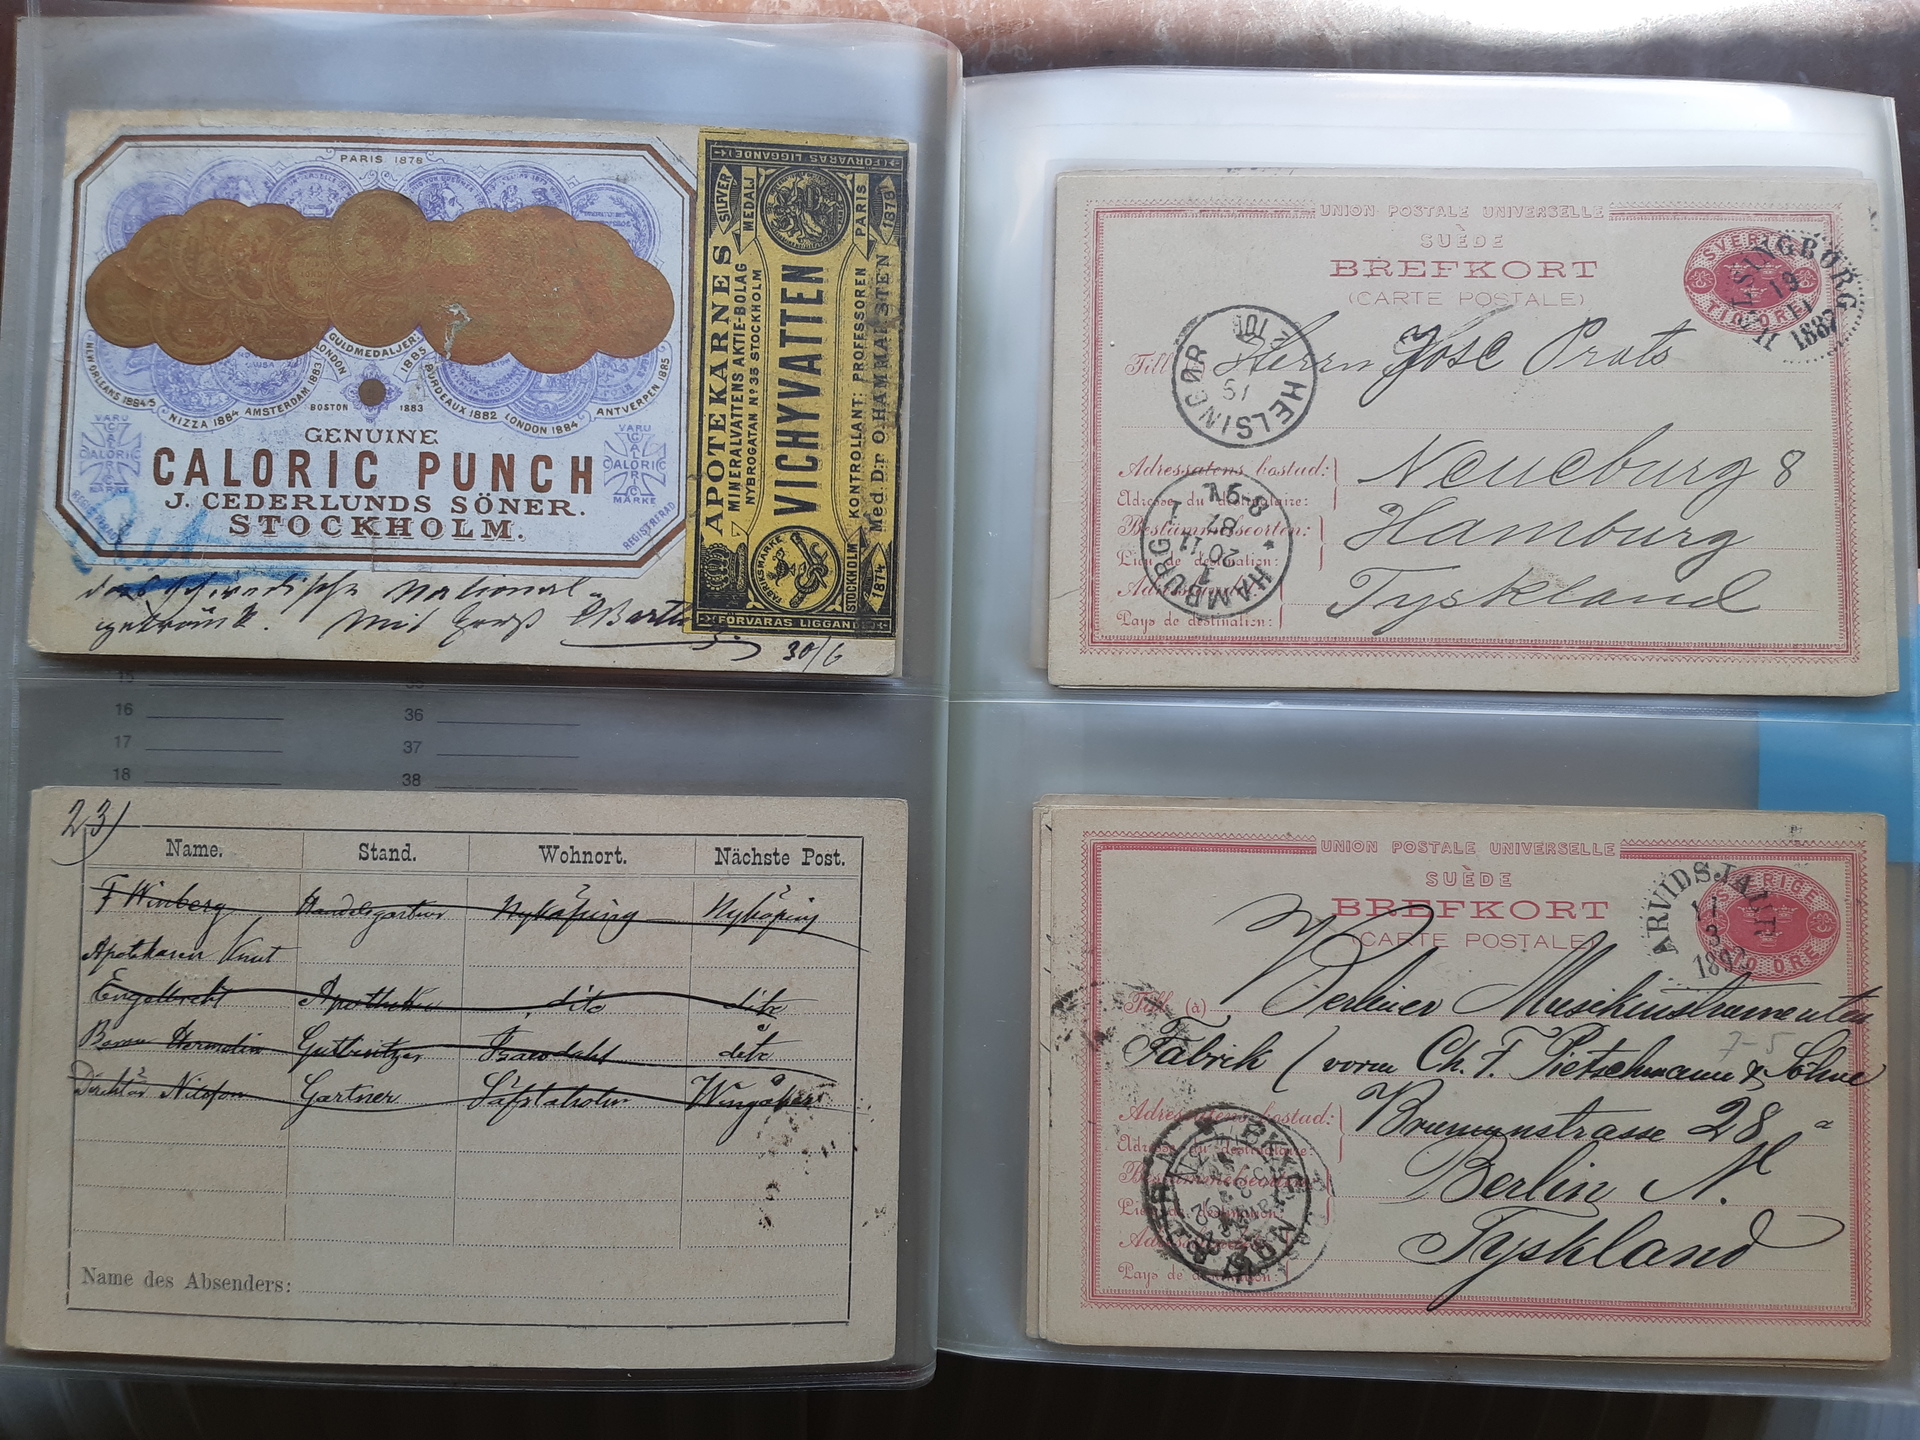 PARIS 1878
GULDMEDALJER
LONDON 1885
NEW ORLEANS 1884-5
NIZZA 1884 AMSTERDAM 1883
BOSTON 1883
BORDEAUX 1882 LONDON 1884
ANTVERPEN 1885
VARU
CALORIC
MARKE
REGISTRERAD
VARU
CALORIC
MARKE
REGISTRERAD
GENUINE
CALORIC PUNCH
J. CEDERLUNDS SÖNER.
STOCKHOLM.
das schwedische National-
getränk. Mit Gruß
30/6
FÖRVARAS LIGGANDE
SILVER MEDALJ
PARIS 1878
APOTEKARNES
MINERALVATTENS AKTIE-BOLAG
NYBROGATAN No 35 STOCKHOLM
VICHYVATTEN
KONTROLLANT: PROFESSOREN
Med. D:r O. HAMMARSTEN
FABRIKSMÄRKE
STOCKHOLM 1874
FÖRVARAS LIGGANDE
16 36
17 37
18 38
23)
Name. Stand. Wohnort. Nächste Post.
F Winberg Handelsgartner Nyköping Nyköping
Apotekaren Knut
Engelbrekt Apotheker dito dito
Gutbesitzer dito
Direktör Gartner Wingåker
Name des Absenders:
UNION POSTALE UNIVERSELLE
SUÈDE
BREFKORT
(CARTE POSTALE)
SVERIGE
TIO ÖRE
HELSINGBORG
19
11
1887
HELSINGØR
Till Herrn José Prats
Adressatens bostad: Neueburg 8
Adresse du destinataire:
Bestämmelseorten: Hamburg
Lieu de destination:
Tyskland
Pays de destination:
HAMBURG
UNION POSTALE UNIVERSELLE
SUÈDE
BREFKORT
(CARTE POSTALE)
SVERIGE
TIO ÖRE
ARVIDSJAUR
11
3
Till (à) Berliner Musikinstrumenten
Fabrik (vorm Ch. F. Pietschmann & Söhne
7-5
Adressatens bostad: Brunnenstrasse 28 a
Adresse du destinataire:
Berlin N.
Tyskland
Pays de destination: